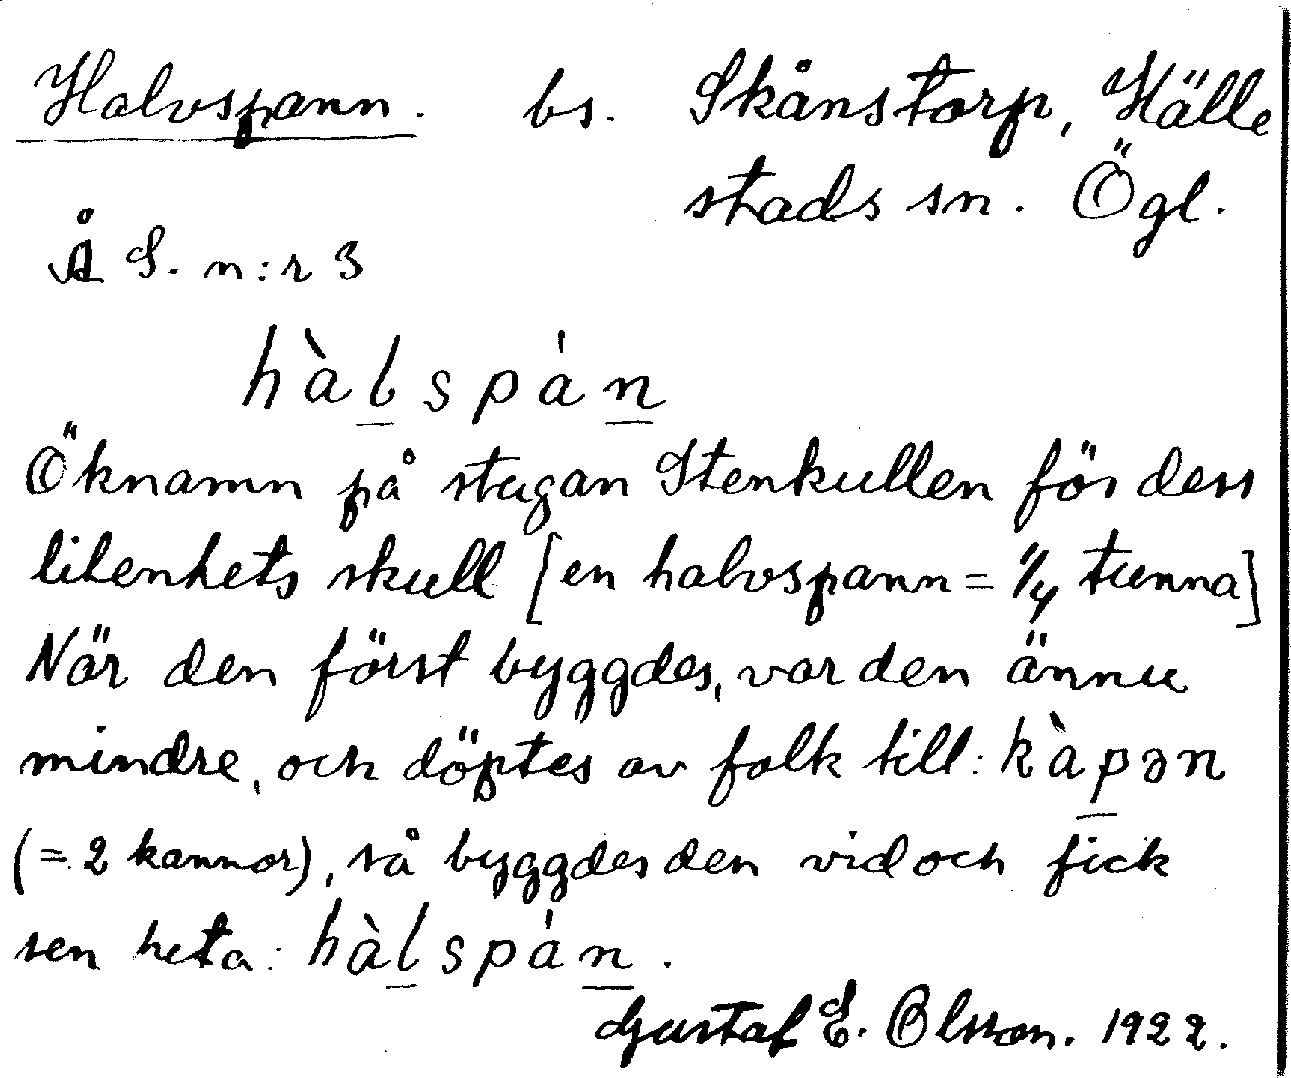 Halvspann. bs. Skånstorp, Hälle
stads sn. Ögl.
Å S. n:r 3
hàlspán
Öknamn på stugan Stenkullen för dess
litenhets skull [en halvspann = 1/4 tunna]
När den först byggdes, var den ännu
mindre, och döptes av folk till: kàpən
(= 2 kannor), så byggdes den vid och fick
sen heta: hàlspán.
Gustaf E. Olsson. 1922.